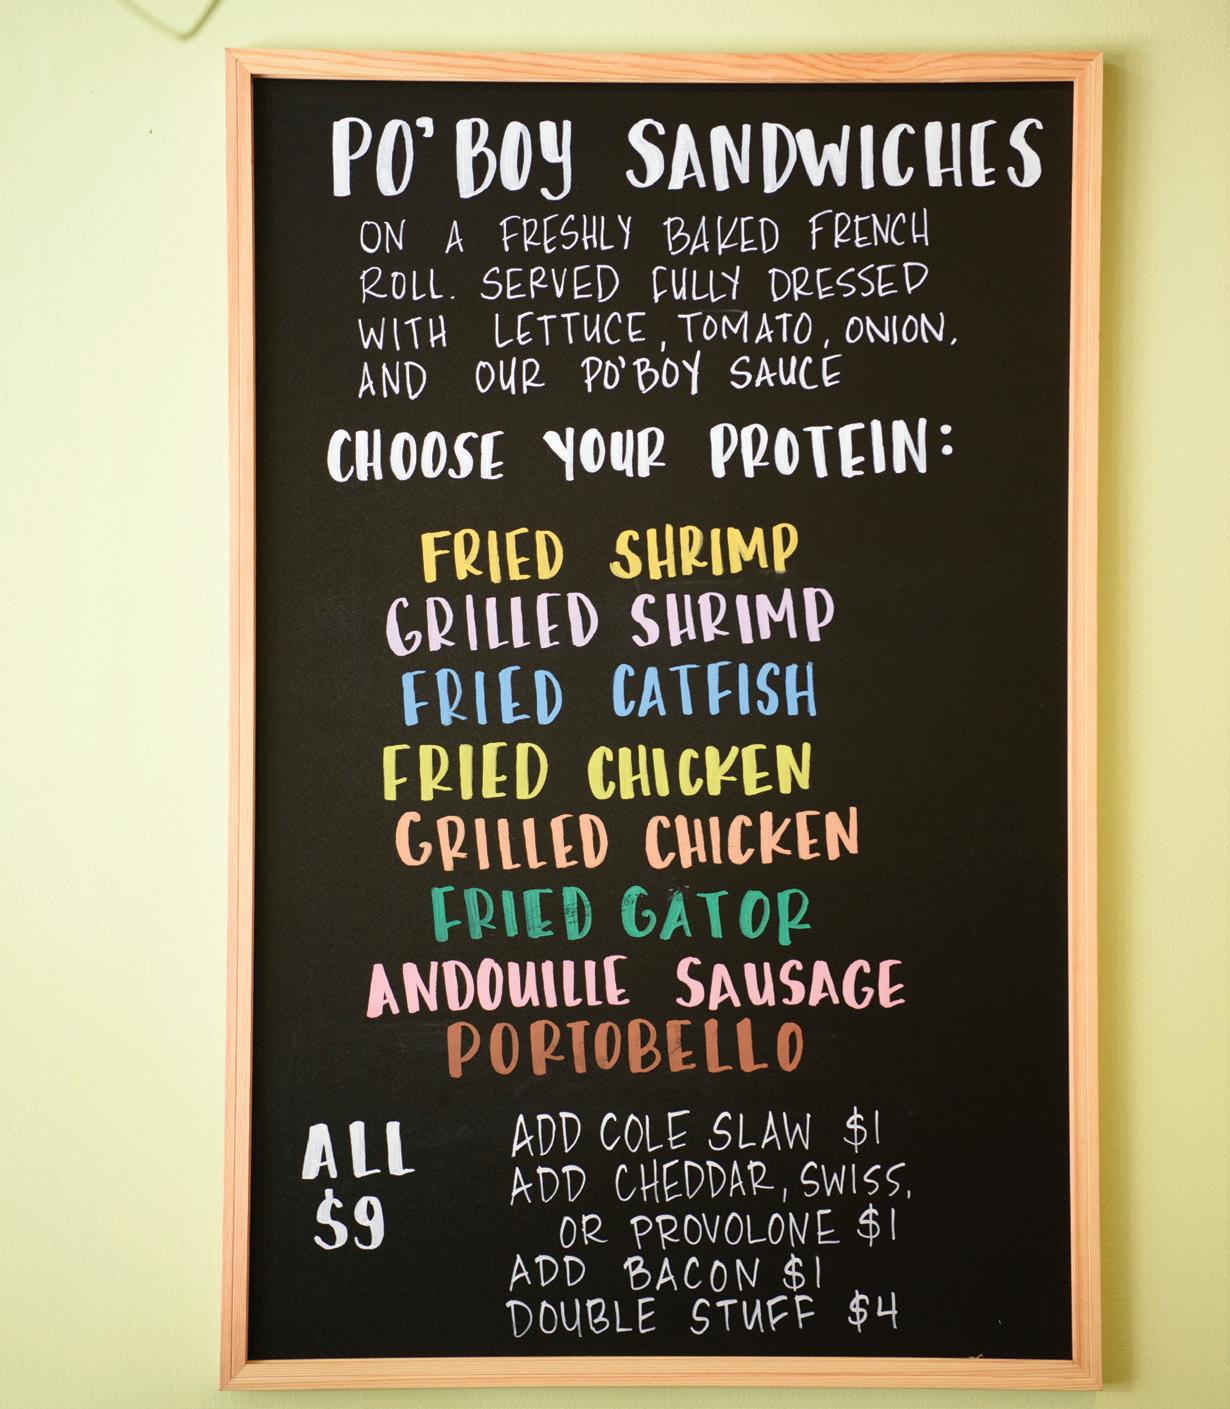 PO'BOY SANDWICHES
ON A FRESHLY BAKED FRENCH
ROLL. SERVED FULLY DRESSED
WITH LETTUCE, TOMATO, ONION,
AND OUR PO'BOY SAUCE
CHOOSE YOUR PROTEIN:
FRIED SHRIMP
GRILLED SHRIMP
FRIED CATFISH
FRIED CHICKEN
GRILLED CHICKEN
FRIED GATOR
ANDOUILLE SAUSAGE
PORTOBELLO
ALL
$9
ADD COLE SLAW $1
ADD CHEDDAR, SWISS,
OR PROVOLONE $1
ADD BACON $1
DOUBLE STUFF $4